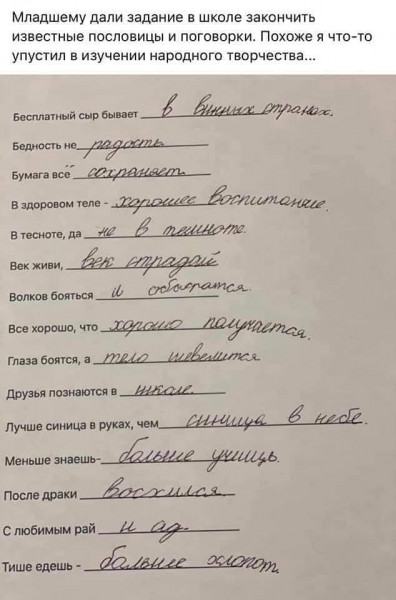 Младшему дали задание в школе закончить
известные пословицы и поговорки. Похоже я что-то
упустил в изучении народного творчества...
Бесплатный сыр бывает в винных странах.
Бедность не радость
Бумага всё сохраняет
В здоровом теле - хорошее воспитание.
В тесноте, да не в темноте.
Век живи, век страдай
Волков бояться и обосратся.
Все хорошо, что хорошо получается.
Глаза боятся, а тело шевелится
Друзья познаются в школе.
Лучше синица в руках, чем синица в небе.
Меньше знаешь- больше учишь.
После драки восхился.
С любимым рай и ад.
Тише едешь - больше хлопот.